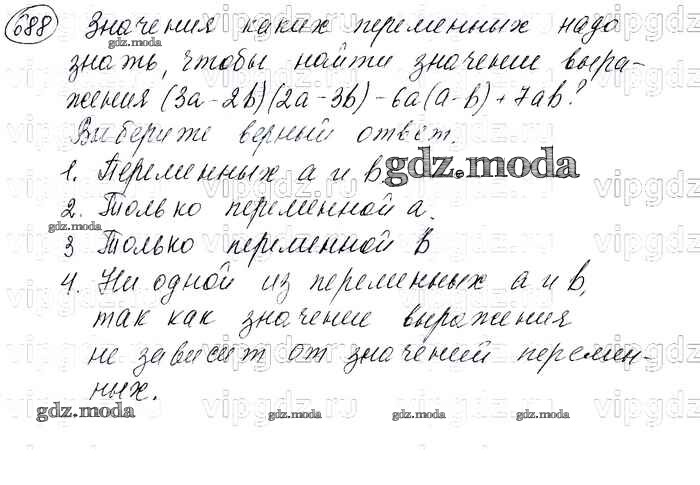 688 Значения каких переменных надо
gdz.moda
знать, чтобы найти значение выра-
жения (3a-2b)(2a-3b)-6a(a-b)+7ab?
Виберите верный ответ.
1. Переменных a и b
gdz.moda
2. Только переменной a.
gdz.moda
3 Только переменной b
4. Ни одной из переменных a и b,
так как значение выражения
не зависит от значений перемен-
ных.
gdz.moda gdz.moda gdz.moda gdz.moda
vipgdz.ru